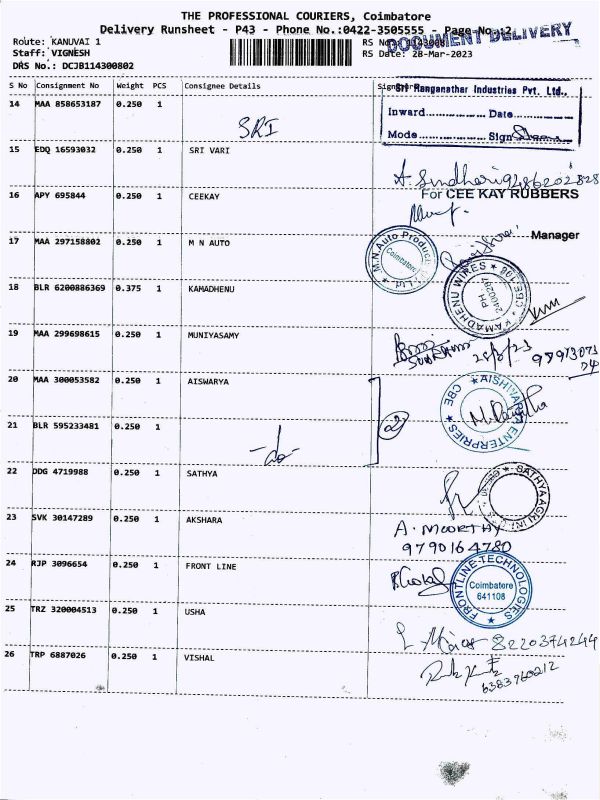 THE PROFESSIONAL COURIERS, Coimbatore
Delivery Runsheet - P43 - Phone No.:0422-3505555 - Page No.:2
DOCUMENT DELIVERY
Route: KANUVAI 1
Staff: VIGNESH RS Date: 28-Mar-2023
DRS No.: DCJB114300802
S No Consignment No Weight PCS Consignee Details
Sri Ranganathar Industries Pvt. Ltd.,
Inward Date
Mode Sign
14 MAA 858653187 0.250 1 SRI
15 EDQ 16593032 0.250 1 SRI VARI
For CEE KAY RUBBERS
16 APY 695844 0.250 1 CEEKAY
Manager
17 MAA 297158802 0.250 1 M N AUTO
M.N.Auto Products Coimbatore
18 BLR 6200886369 0.375 1 KAMADHENU
KAMADHENU WIRES CBE
19 MAA 299698615 0.250 1 MUNIYASAMY
20 MAA 300053582 0.250 1 AISWARYA
AISHWARYA ENTERPRISES CBE
21 BLR 595233481 0.250 1 -do-
22 DDG 4719988 0.250 1 SATHYA
SATHYA AGRI
23 SVK 30147289 0.250 1 AKSHARA A. MOORTHY
9790164780
24 RJP 3096654 0.250 1 FRONT LINE
FRONTLINE-TECHNOLOGIES Coimbatore 641108
25 TRZ 320004513 0.250 1 USHA
8220374244
26 TRP 6887026 0.250 1 VISHAL
6383960212